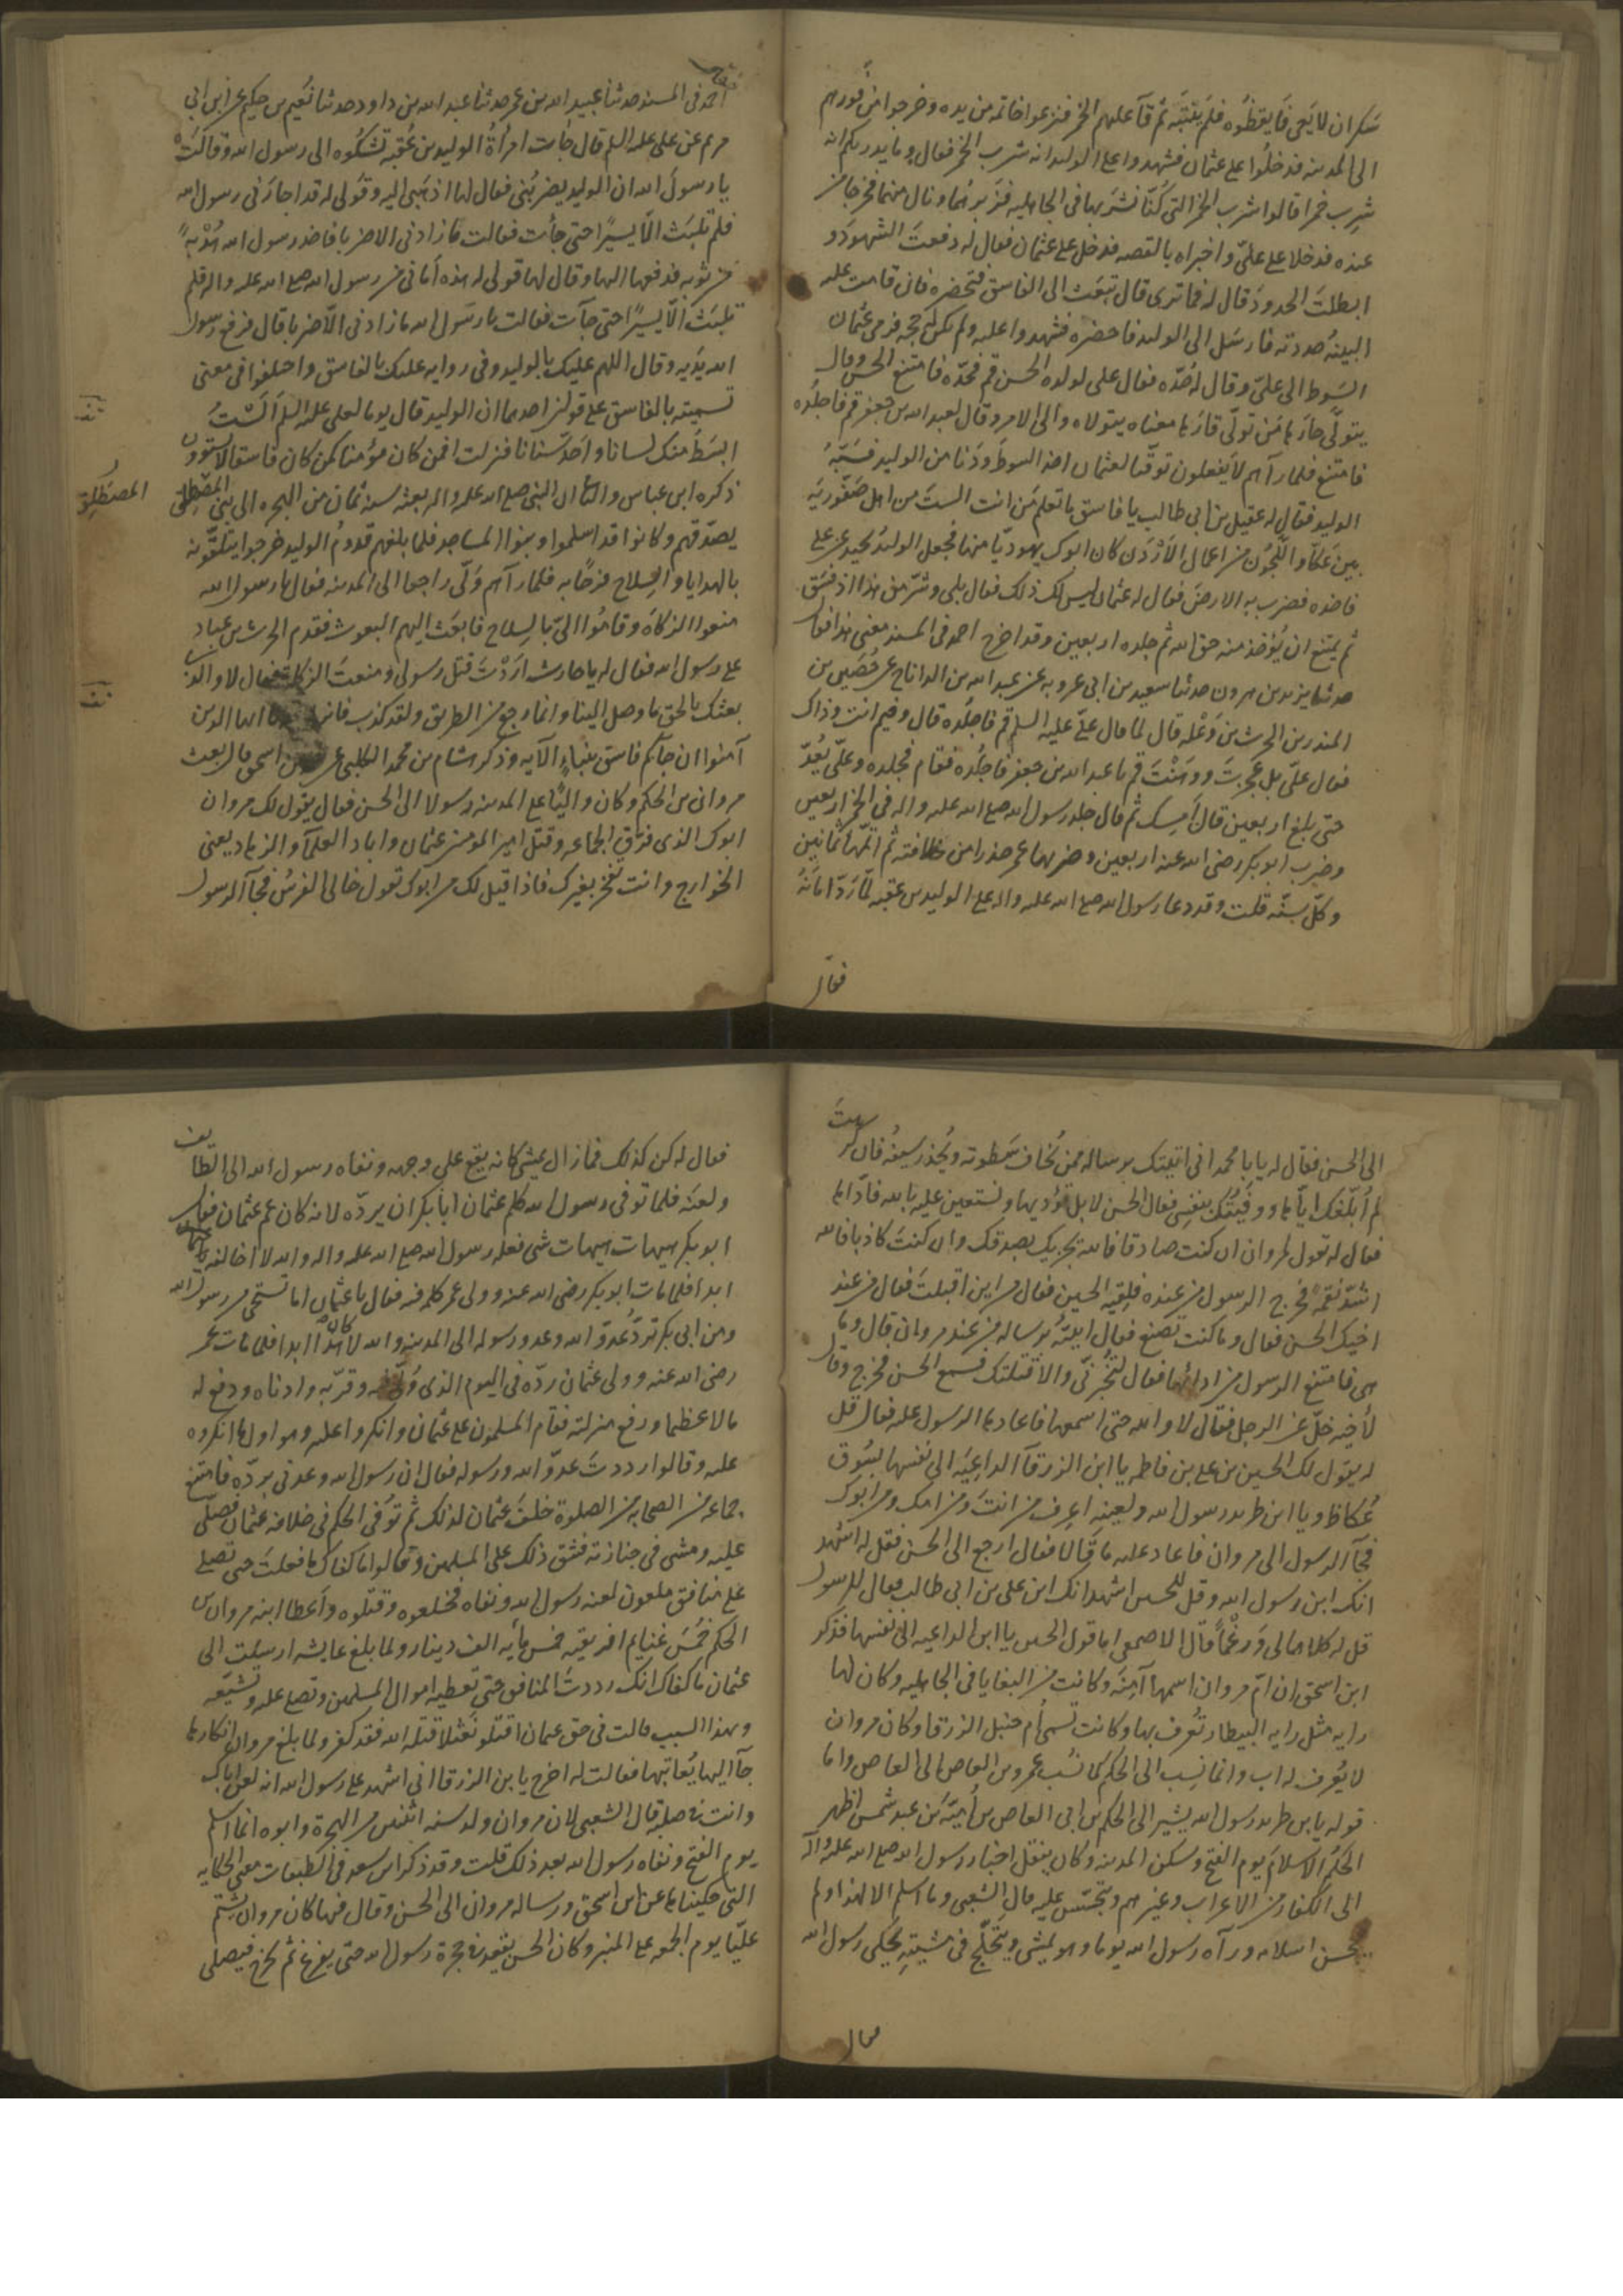 سكران لا يعى فايقظوه فلم ينتبه ثم قآ عليهم الخمر فنزعوا خاتمه من يده وخرجوا من فورهم
الى المدينه فدخلوا على عثمان فشهدوا على الوليد انه شرب الخمر فقال وما يدريكم انه
شرب خمرا قالوا شرب الخمر التى كنا نشربها فى الجاهليه فزبرهما ونال منهما فخرجا من
عنده فدخلا على علىّ واخبراه بالقصه فدخل على عثمان فقال له دفعت الشهود و
ابطلت الحدود قال له فما ترى قال تبعث الى الفاسق فتحضره فان قامت عليه
البينه حددته فارسل الى الوليد فاحضره فشهدوا عليه ولم يكن له حجه فرمى عثمان
السوط الى علىّ وقال له حدّه فقال على لولده الحسن قم فحدّه فامتنع الحسن وقال
يتولّى حارّها من تولّى قارّها معناه يتولاه والى الامر وقال لعبد الله بن جعفر قم فاجلده
فامتنع فلما رآهم لا يفعلون توقّيا لعثمان اخذ السوط ودنا من الوليد فسبّه
الوليد فقال له عقيل بن ابى طالب يا فاسق ما تعلم من انت الست من اهل صفّوريه
بين عكا واللجون من اعمال الاردن كان ابوك يهوديا منها فجعل الوليد يحيد عن على
فاخذه فضرب به الارض فقال له عثمان ليس لك ذلك فقال بلى وشرّ من هذا اذ فسق
ثم يمتنع ان يؤخذ منه حق الله ثم جلده اربعين وقد اخرج احمد فى المسند معنى هذا فقال
حدثنا يزيد بن هرون حدثنا سعيد بن ابى عروبه عن عبد الله بن الداناج عن حُصَين بن
المنذر بن الحرث بن وعله قال لما قال علىّ عليه السلم قم فاجلده قال وفيم انت وذاك
فقال علىّ بل عجزت ووهنت قم يا عبد الله بن جعفر فاجلده فقام فجلده وعلىّ يعدّ
حتى بلغ اربعين قال امسك ثم قال جلد رسول الله صلى الله عليه واله فى الخمر اربعين
وضرب ابو بكر رضى الله عنه اربعين وضربها عمر صدرا من خلافته ثم اتمّها ثمانين
وكلّ سنّه قلت وقد دعا رسول الله صلى الله عليه واله على الوليد بن عقبه لمّا ردّ امانهُ
فقال
احمد فى المسند حدثنا عبيد الله بن عمر حدثنا عبد الله بن داود حدثنا نُعيم بن حكيم عن ابى
مريم عن على عليه السلم قال جأت امرأة الوليد بن عُقبه تشكُوه الى رسول الله وقالت
يا رسول الله ان الوليد يضربُنى فقال لها اذهبى اليه وقُولى له قد اجارَنى رسول الله
فلم تلبث الّا يسيرًا حتى جأت فقالت ما زادنى الا ضربا فاخذ رسول الله هُدْبةً
من ثوبه فدفعها اليها وقال لها قولى له هذه أمانى من رسول الله صلى الله عليه واله فلم
تلبث الّا يسيرًا حتى جآت فقالت يا رسول الله ما زادنى الّا ضربا قال فرفع رسول
الله يديه وقال اللهم عليك بالوليد وفى روايه عليك بالفاسق واختلفوا فى معنى
تسميته بالفاسق على قولين احدهما ان الوليد قال يوما لعلى عليه السلم ألَسْتُ
ابسَطَ منك لسانا واَحَدّ سنانا فنزلت افمن كان مؤمنا كمن كان فاسقا لا يستوون
ذكره ابن عباس والثانى ان النبى صلى الله عليه واله بعثه سنه ثمان من الهجره الى بنى المصطلق
المصْطَلِق
يصدّقهم وكانوا قد اسلموا وبنوا المساجد فلما بلغهم قدومُ الوليد خرجوا يتلقّونه
بالهدايا والسلاح فرحًا به فلما رآهم ولّى راجعا الى المدينه فقال يا رسول الله
منعوا الزكاة وقاموُا الىّ بالسلاح فابعَث اليهم البعوث فقدم الحرث بن عباد
على رسول الله فقال له يا حارث اردْتَ قتل رسولى ومنعتَ الزكاة فقال لا والذى
بعثك بالحق ما وصل الينا وانما رجع من الطريق ولقد كذب فانزل يا ايها الذين
آمنوا ان جآكم فاسق بنباءٍ الآيه وذكر هشام بن محمد الكلبى عن بن اسحق قال بعث
مروان بن الحكم وكان واليًا على المدينه رسولا الى الحسن فقال يقول لك مروان
ابوك الذى فرّق الجماعه وقتل امير المؤمنين عثمان واباد العلمآ والزهاد يعنى
الخوارج وانت تفخر بغيرك فاذا قيل لك من ابوك تقول خالى الفرسُ فجآ الرسول
الى الحسن فقال له يا با محمد انى اتيتك برساله ممن تُخاف سَطوته ويُحذر سيفه فان كرهت
لم اُبلّغك ايّاها ووقيتُك بنفسى فقال الحسن لا بل تؤديها ونستعين عليه بالله فادّاها
فقال له تقول لمروان ان كنت صادقا فالله يجزيك بصدقك وان كنتَ كاذبا فالله
اشدّ نقمة فخرج الرسول من عنده فلقيه الحسين فقال من اين اقبلتَ فقال من عند
اخيك الحسن فقال وما كنت تصنع فقال اتيتُه برساله من عند مروان قال وما
هى فامتنع الرسول من ادائها فقال لتخبرنّى والا قتلتك فسمع الحسن فخرج وقال
لأخيه خلّ عن الرجل فقال لا والله حتى اسمعها فاعادها الرسول عليه فقال قل
له يقول لك الحسين بن على بن فاطمه يا ابن الزرقآ الداعِيَه الى نفسها بسُوق
عُكاظ ويا ابن طريد رسول الله ولعينه اعرف من انتَ ومن امك ومن ابوك
فجآ الرسول الى مروان فاعاد عليه ما قالا فقال ارجع الى الحسن فقل له اشهد
انك ابن رسول الله وقل للحسين اشهد انك ابن على بن ابى طالب فقال للرسول
قل له كلاهما لى وَرغْماً قال الاصمعى اما قول الحسين يا ابن الداعيه الى نفسها فذكر
ابن اسحق ان امّ مروان اسمها آمِنَه وكانت من البغايا فى الجاهليه وكان لها
رايه مثل رايه البيطار تُعرف بها وكانت تسمى ام حنبل الزرقا وكان مروان
لا يُعرف له اب وانما نسِب الى الحكم كما نُسب عمرو بن العاص الى العاص واما
قوله يا بن طريد رسول الله يشير الى الحكم بن ابى العاص بن أميّة بن عبد شمس اظهر
الحكم الاسلام يوم الفتح وسكن المدينه وكان ينقل اخبار رسول الله صلى الله عليه واله
الى الكفار من الاعراب وغيرهم ويتجسّس عليه قال الشعبى وما اسلم الا لهذا ولم
يحسن اسلامه ورآه رسول الله يوما وهو يمشى ويَتَخَلّج فى مشيَتِه يحكى رسول الله
فقال
فقال له كن كذلك فما زال يمشى كانه يقع على وجهه ونفاه رسول الله الى الطايف
ولعنَه فلما توفى رسول الله كلم عثمان ابا بكر ان يردّه لانه كان عم عثمان فقال
ابو بكر هيهات هيهات شى فعله رسول الله صلى الله عليه واله والله لا اخالفه
ابدا فلما مات ابو بكر رضى الله عنه وولى عمر كلمه فيه فقال يا عثمان اما تستحى من رسول الله
ومن ابى بكر تردّ عدوّ الله وعدو رسوله الى المدينه والله لا كان هذا ابدا فلما مات عمر
رضى الله عنه وولى عثمان ردّه فى اليوم الذى وُلّى فيه وقرّبه وادناه ودفع له
مالا عظيما ورفع منزلته فقام المسلمون على عثمان وانكروا عليه وهو اول ما انكروه
عليه وقالوا رددتَ عدوّ الله ورسوله فقال ان رسول الله وعدنى بردّه فامتنع
جماعه من الصحابه من الصلوة خلفَ عثمان لذلك ثم توُفّى الحكم فى خلافه عثمان فصلّى
عليه ومشى فى جنازته فشق ذلك على المسلمين وقالوا ما كفاك ما فعلتَ حتى تصلى
على منافق ملعون لعنه رسول الله ونفاه فخلعوه وقتلوه وأعطا ابنه مروان بن
الحكم خُمسَ غنايم افريقيه خمس مأيه الف دينار ولما بلغ عايشه ارسلت الى
عثمان ما كفاك انك رددتَ المنافق حتى تعطيه اموال المسلمين وتصلى عليه وتشيّعه
وبهذا السبب قالت فى حق عثمان اقتلو نَعْثلا قتله الله فقد كفر ولما بلغ مروان انكارها
جآ اليها يُعاتبها فقالت له اخرج يا بن الزرقا انى اشهد على رسول الله انه لعن اباك
وانت فى صلبه قال الشعبى لان مروان ولد سنه اثنتين من الهجرة وابوه انما اسلم
يوم الفتح ونفاه رسول الله بعد ذلك قلت وقد ذكر ابن سعد فى الطبقات معنى الحكايه
التى حكيناها عن ابن اسحق ورساله مروان الى الحسن وقال فيها كان مروان يشتم
عليّا يوم الجمعه على المنبر وكان الحسن يقعد فى حجرة رسول الله حتى يفرغ ثم يخرج فيصلى